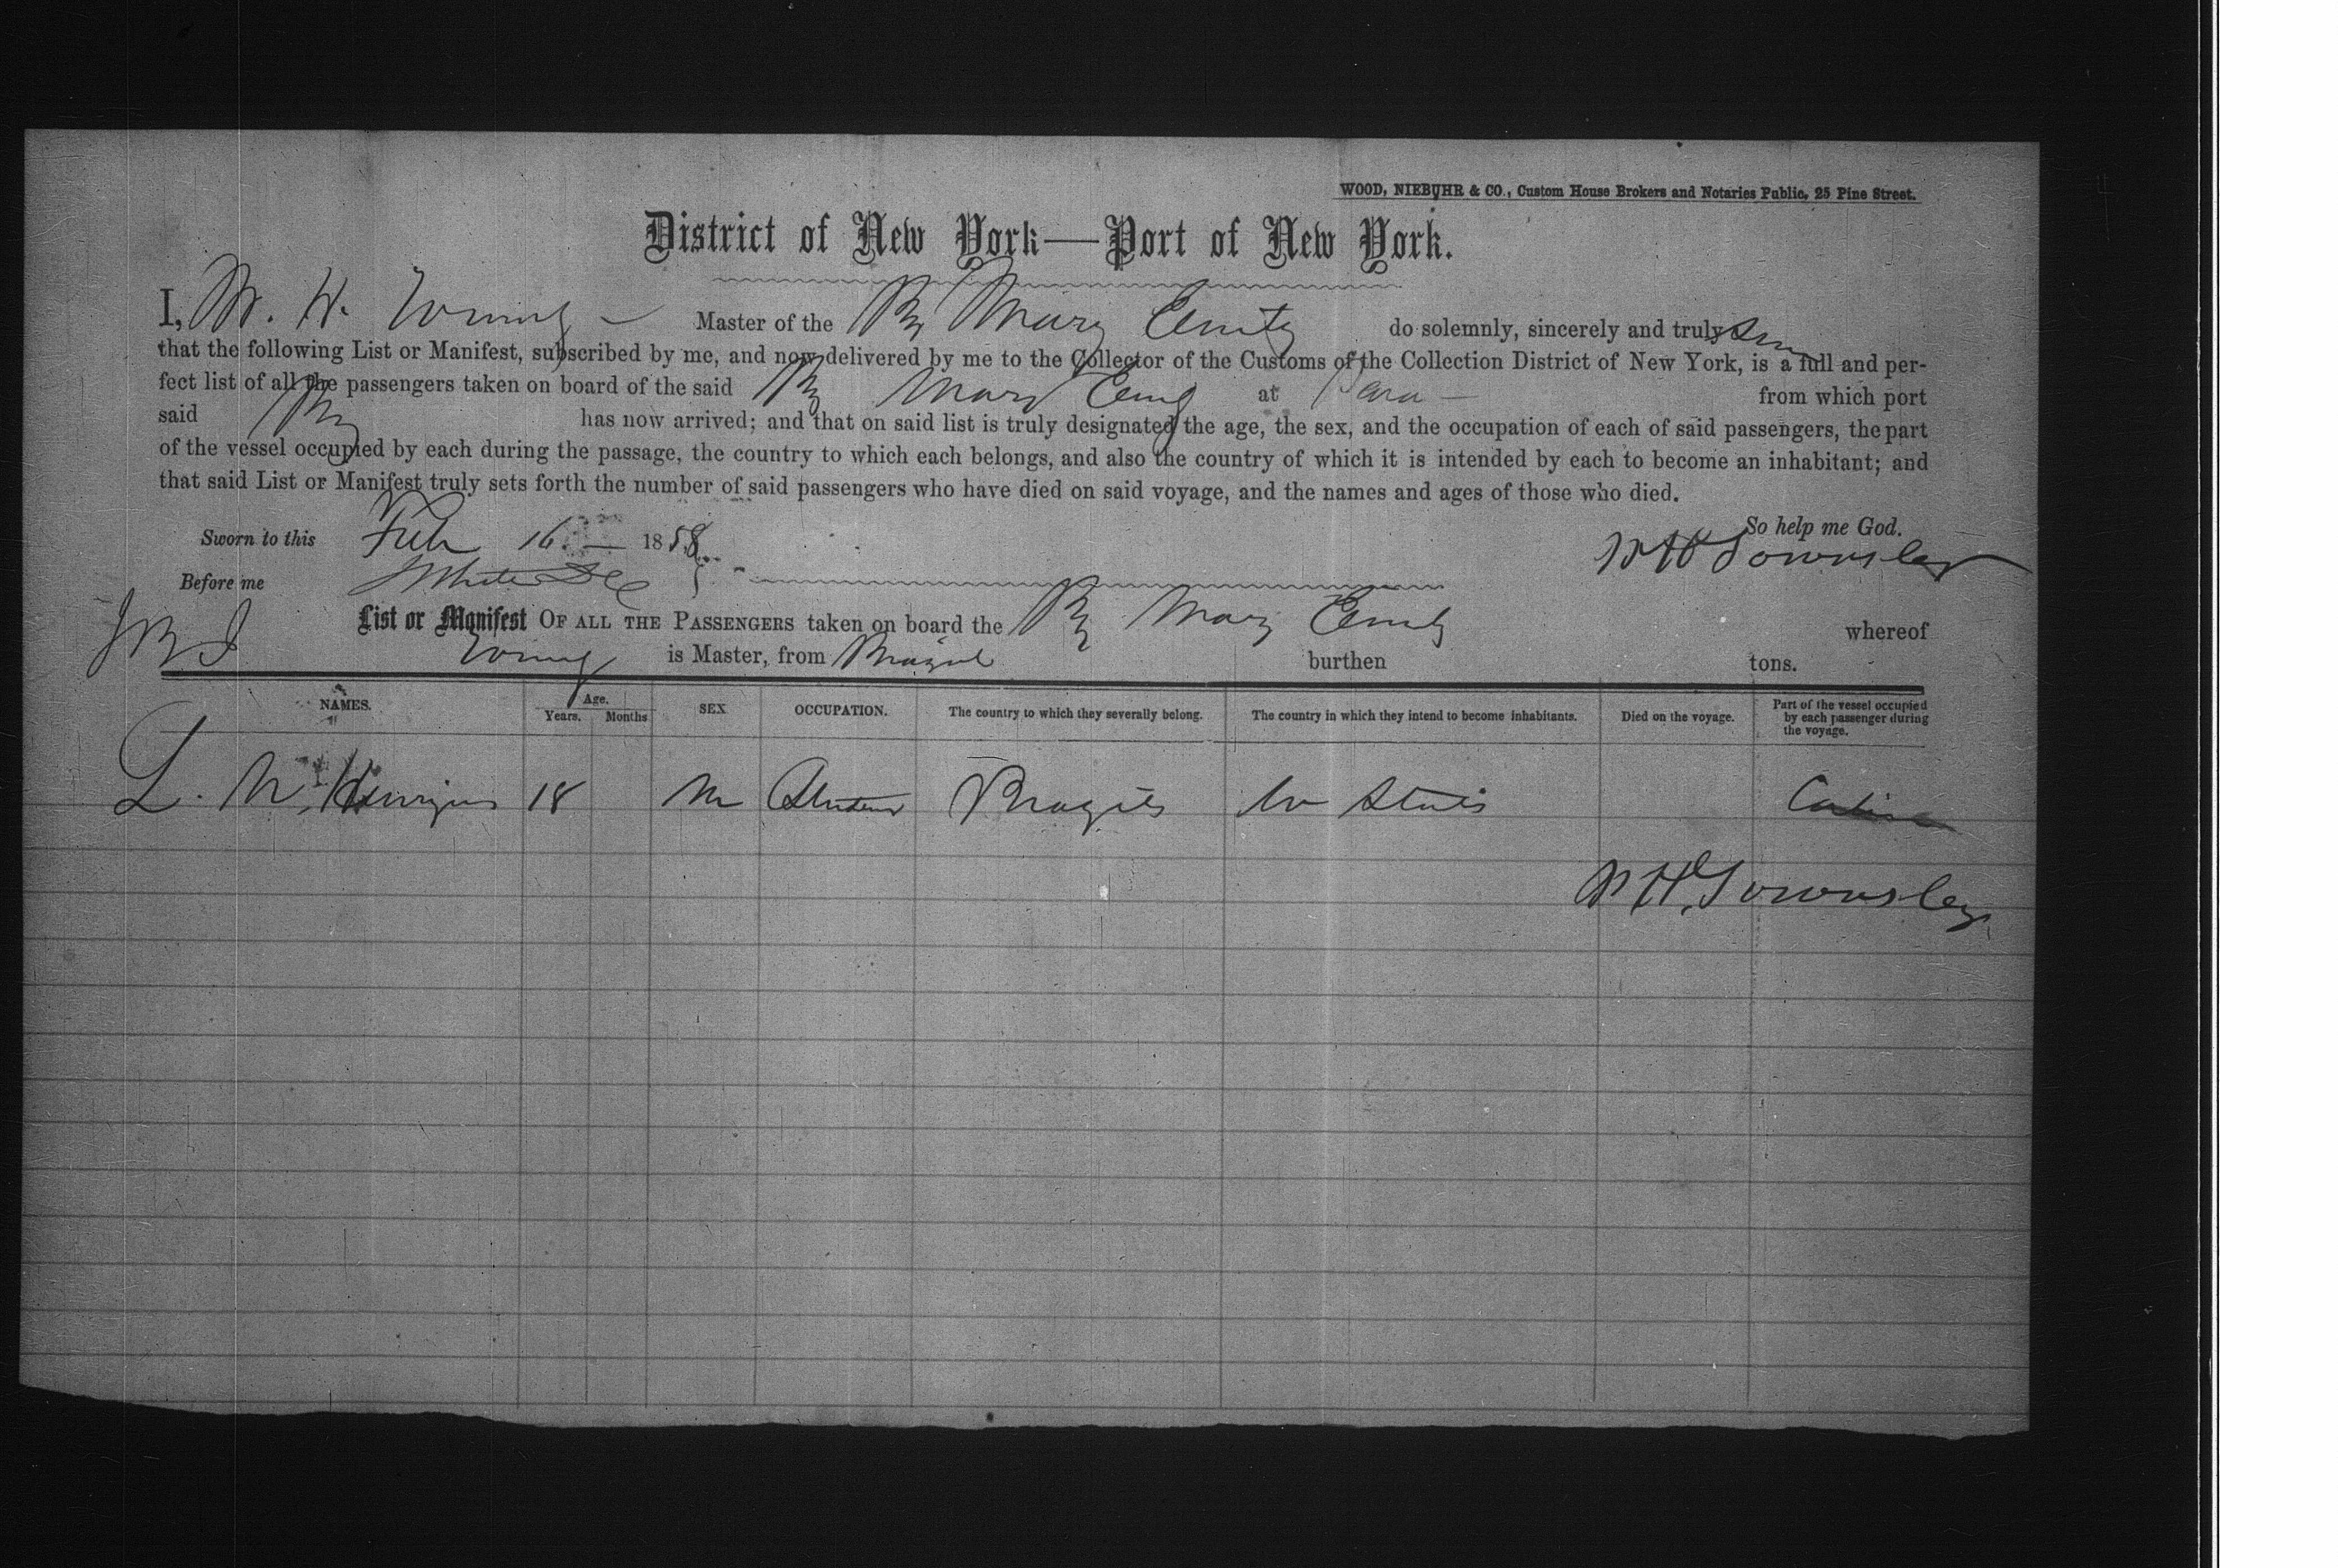 WOOD, NIEBUHR & CO., Custom House Brokers and Notaries Public, 25 Pine Street.
District of New York—Port of New York.
I, W. H. Master of the Mary do solemnly, sincerely and truly
that the following List or Manifest, subscribed by me, and now delivered by me to the Collector of the Customs of the Collection District of New York, is a full and per-
fect list of all the passengers taken on board of the said Mary at Para — from which port
said has now arrived; and that on said list is truly designated the age, the sex, and the occupation of each of said passengers, the part
of the vessel occupied by each during the passage, the country to which each belongs, and also the country of which it is intended by each to become an inhabitant; and
that said List or Manifest truly sets forth the number of said passengers who have died on said voyage, and the names and ages of those who died.
So help me God.
Sworn to this Feb 16 — 1858
W H Townsley
Before me
List or Manifest OF ALL THE PASSENGERS taken on board the Mary whereof
is Master, from burthen tons.
NAMES. Age. Years. Months SEX OCCUPATION. The country to which they severally belong. The country in which they intend to become inhabitants. Died on the voyage. Part of the vessel occupied by each passenger during the voyage.
L. 18 M Brazils States Cabin
W H Townsley